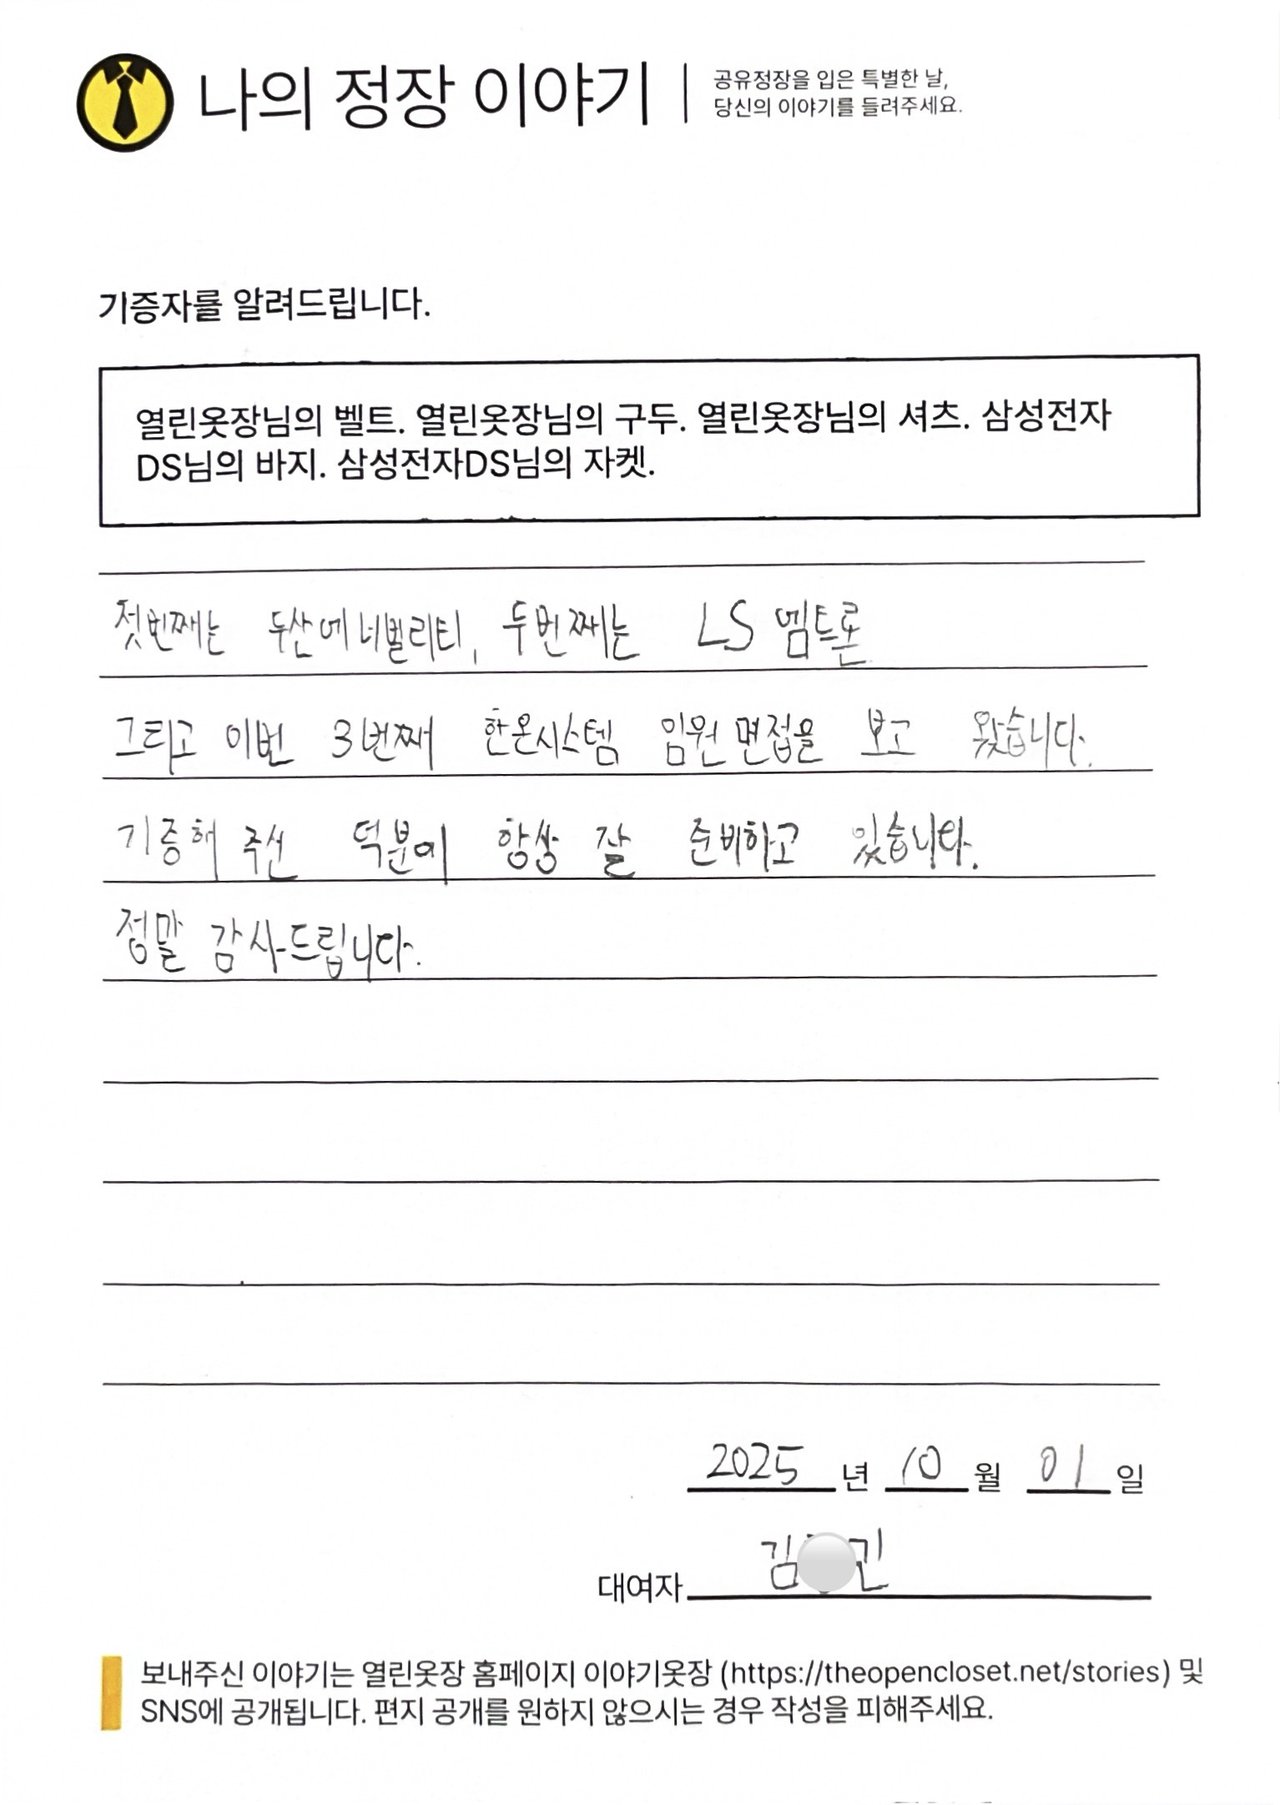 나의 정장 이야기
공유정장을 입은 특별한 날,
당신의 이야기를 들려주세요.
기증자를 알려드립니다.
열린옷장님의 벨트. 열린옷장님의 구두. 열린옷장님의 셔츠. 삼성전자
DS님의 바지. 삼성전자DS님의 자켓.
첫번째는 두산에너빌리티, 두번째는 LS 엠트론
그리고 이번 3번째 한온시스템 임원 면접을 보고 왔습니다.
기증해 주신 덕분에 항상 잘 준비하고 있습니다.
정말 감사드립니다.
2025 년 10 월 01 일
대여자 김 진
보내주신 이야기는 열린옷장 홈페이지 이야기옷장 (https://theopencloset.net/stories) 및
SNS에 공개됩니다. 편지 공개를 원하지 않으시는 경우 작성을 피해주세요.